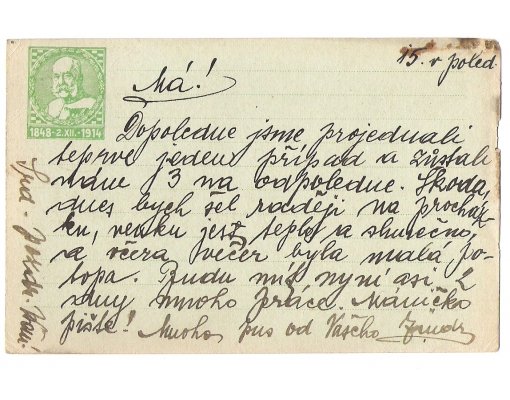 15. v poled.
Má!
1848-2.XII.-1914
Dopoledne jsme projednali
teprve jeden případ a zůstali
nám 3 na odpoledne. Škoda,
dnes bych šel raději na procház-
ku, venku jest teplo a slunečno,
a včera večer byla malá po-
topa. Budu míti nyní asi 2
dny mnoho práce. Maničko
pište! Mnoho pus od Vašeho